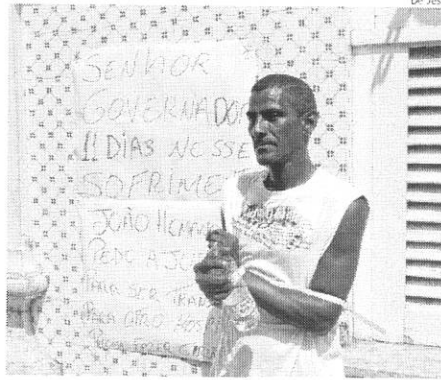 De Jes
SENHOR
GOVERNADOR
11 DIAS NESSE
SOFRIME
JOÃO
PEDE A
PARA SER TRAN
PARA OTRO HOSP